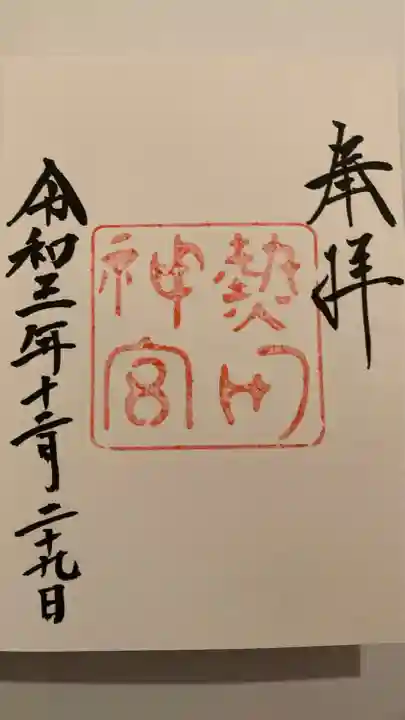 奉拝
熱田
神宮
令和三年十二月二十九日